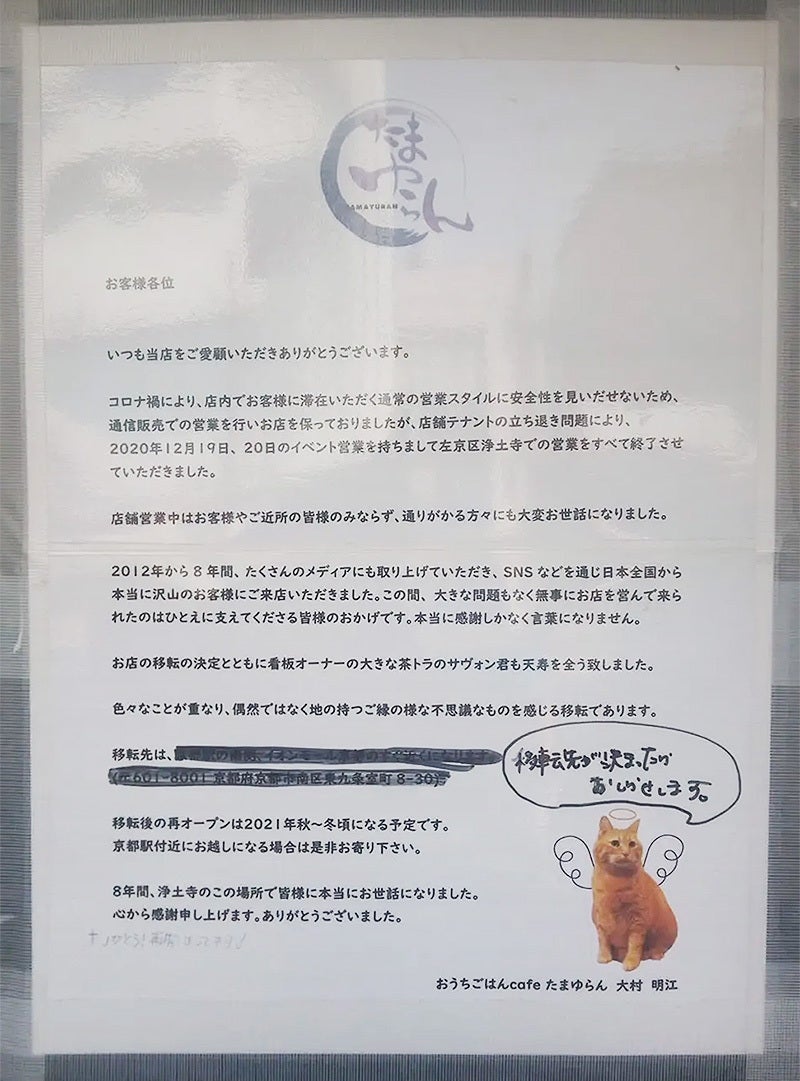 たまゆらん
TAMAYURAN
お客様各位
いつも当店をご愛顧いただきありがとうございます。
コロナ禍により、店内でお客様に滞在いただく通常の営業スタイルに安全性を見いだせないため、
通信販売での営業を行いお店を保っておりましたが、店舗テナントの立ち退き問題により、
2020年12月19日、20日のイベント営業を持ちまして左京区浄土寺での営業をすべて終了させ
ていただきました。
店舗営業中はお客様やご近所の皆様のみならず、通りがかる方々にも大変お世話になりました。
2012年から8年間、たくさんのメディアにも取り上げていただき、SNSなどを通じ日本全国から
本当に沢山のお客様にご来店いただきました。この間、大きな問題もなく無事にお店を営んで来ら
れたのはひとえに支えてくださる皆様のおかげです。本当に感謝しかなく言葉になりません。
お店の移転の決定とともに看板オーナーの大きな茶トラのサヴォン君も天寿を全う致しました。
色々なことが重なり、偶然ではなく地の持つご縁の様な不思議なものを感じる移転であります。
移転先は、
(〒601-8001 京都府京都市南区東九条室町8-30)
移転先が決まったら
おしらせします。
移転後の再オープンは2021年秋〜冬頃になる予定です。
京都駅付近にお越しになる場合は是非お寄り下さい。
8年間、浄土寺のこの場所で皆様に本当にお世話になりました。
心から感謝申し上げます。ありがとうございました。
おうちごはんcafe たまゆらん 大村 明江